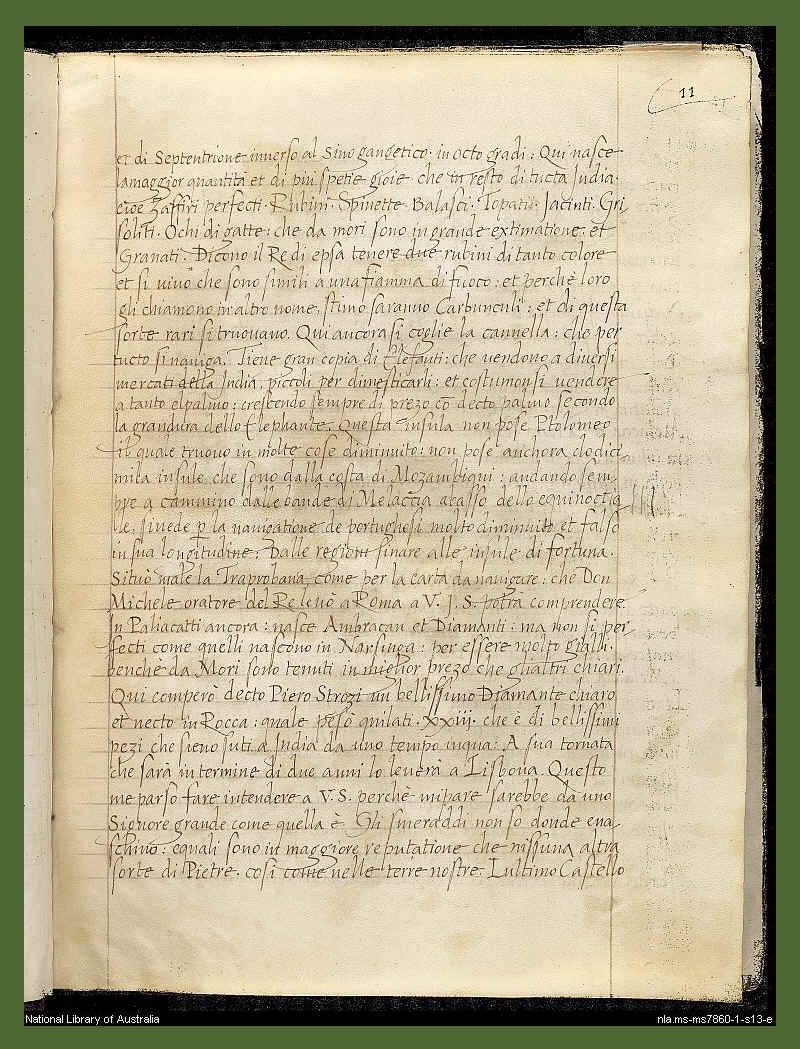 11
et di Septentrione inverso al Sino gangetico. in octo gradi: Qui nasce
lamaggior quantità et di piu spetie gioie che in resto di tucta India.
cioè Zaffiri perfecti. Rubini. Spinette. Balasci. Topatii. Jacinti. Gri
soliti. Ochi di gatte: che da mori sono in grande extimatione. et
Granati. Dicono il Re di epsa tenere due rubini di tanto colore
et si vivo che sono simili a una fiamma di fuoco: et perchè loro
gli chiamono in altro nome. stimo saranno Carbunculi: et di questa
sorte rari si truovano. Qui ancora si coglie la cannella: che per
tucto si naviga. Tiene gran copia di Elefanti: che vendono a diversi
mercati della India. piccoli per dimesticarli: et costumonsi vendere
a tanto el palmo: crescendo sempre di prezo cō decto palmo secondo
la grandura dello Elephante. Questa insula non pose Ptolomeo
il quale truovo in molte cose diminuito: non pose anchora dodici
mila insule che sono dalla costa di Mozambiqui: andando sem
pre a cammino dalle bande di Melaccia abasso dello equinoctia
le. si vede p la navigatione de portughesi molto diminuito et falso
in sua longitudine. Dalle regioni finare alle insule di fortuna.
Situò male la Traprobana come per la carta da navigare: che Don
Michele oratore del Re levò a Roma a V. J. S. potrà comprendere.
In Paliacatti ancora: nasce Ambracan et Diamanti: ma non si per
fecti come quelli nascono in Narsinga: per essere molto gialli.
benchè da Mori sono tenuti in miglior prezo che gli altri chiari.
Qui comperò decto Piero Strozi un bellissimo Diamante chiaro
et necto in Rocca: quale pesò quilati. XXIII. che è di bellissimi
pezi che sieno suti a India da uno tempo inqua: A sua tornata
che sarà in termine di due anni lo leverà a Lisbona. Questo
me parso fare intendere a V. S. perchè mi pare sarebbe da uno
Signore grande come quella è. Gli smeraldi non so donde ena
schino: equali sono in maggiore reputatione che nissuna altra
sorte di Pietre. così come nelle terre nostre. Lultimo Castello
National Library of Australia
nla.ms-ms7860-1-s13-e